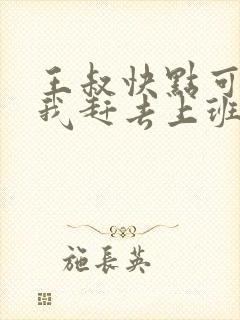 王叔快點可
我赶去上班
施長英